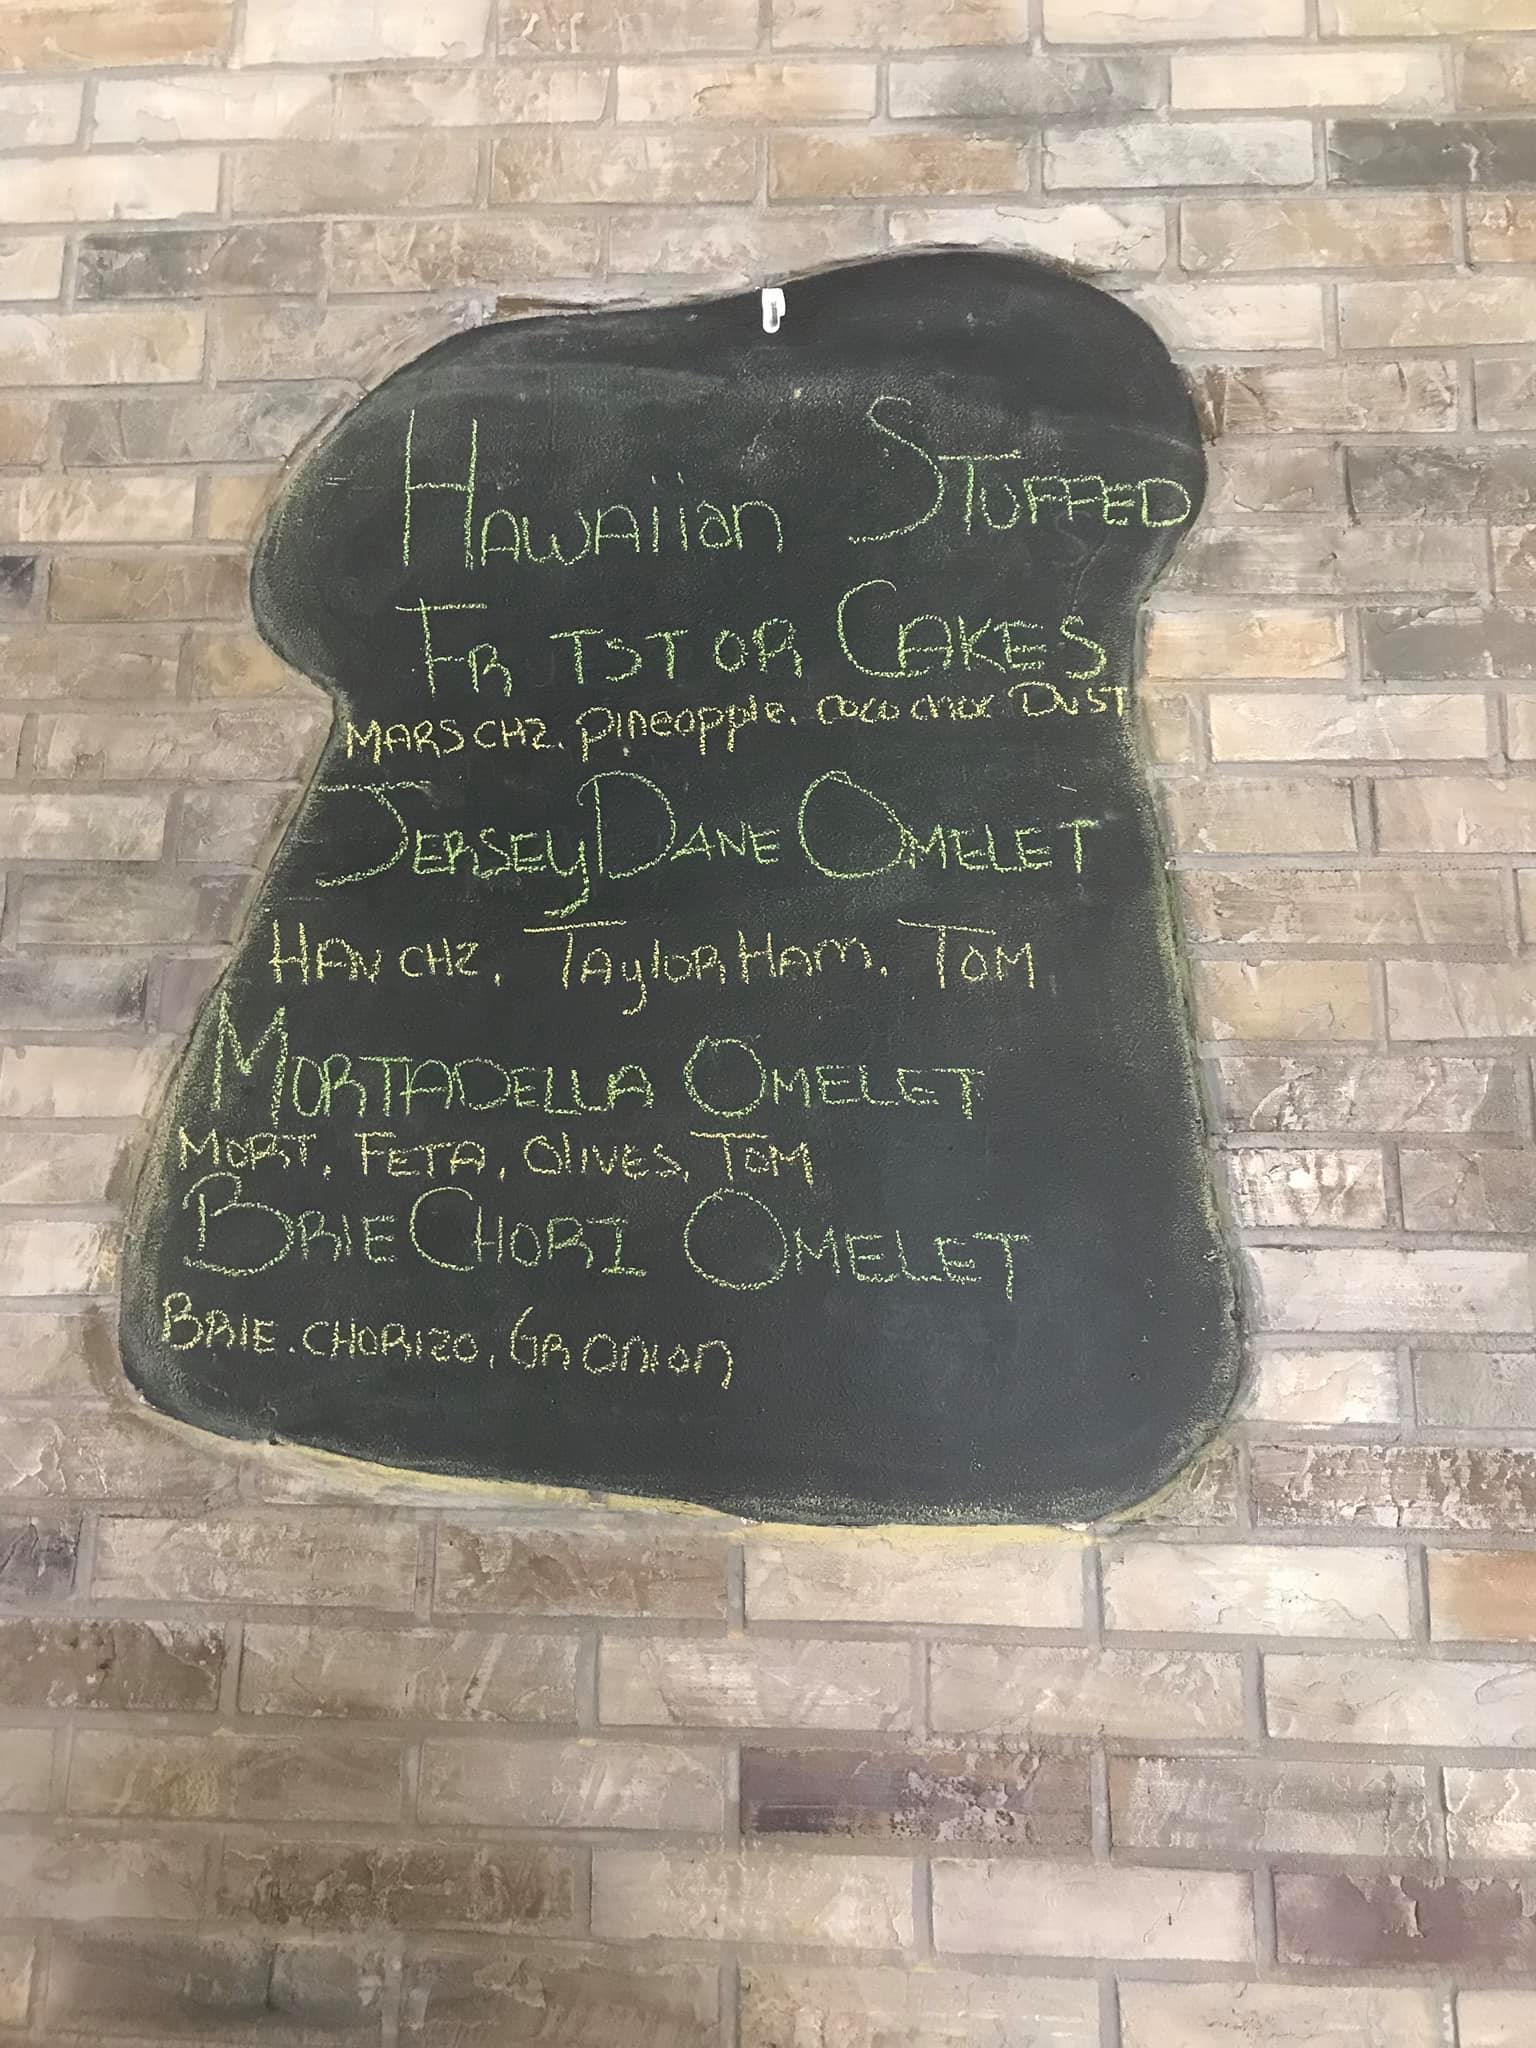 Hawaiian Stuffed
Fr Tst or Cakes
Mars chz. pineapple. coco choc Dust
Jersey Dane Omelet
Hav chz, Taylor Ham, Tom
Mortadella Omelet
Mort, Feta, Olives, Tom
Brie Chori Omelet
Brie. chorizo, Gr onion